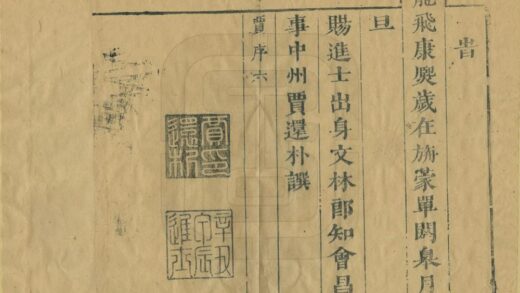 旹
龍飛康熙歲在旃蒙單閼皋月
旦
賜進士出身文林郎知會昌
事中州賈還朴譔
賈序六
賈印還朴
辛丑
進士